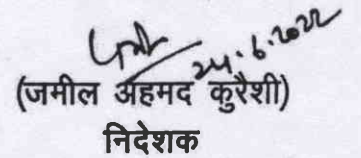 24.6.2022
(जमील अहमद कुरैशी)
निदेशक